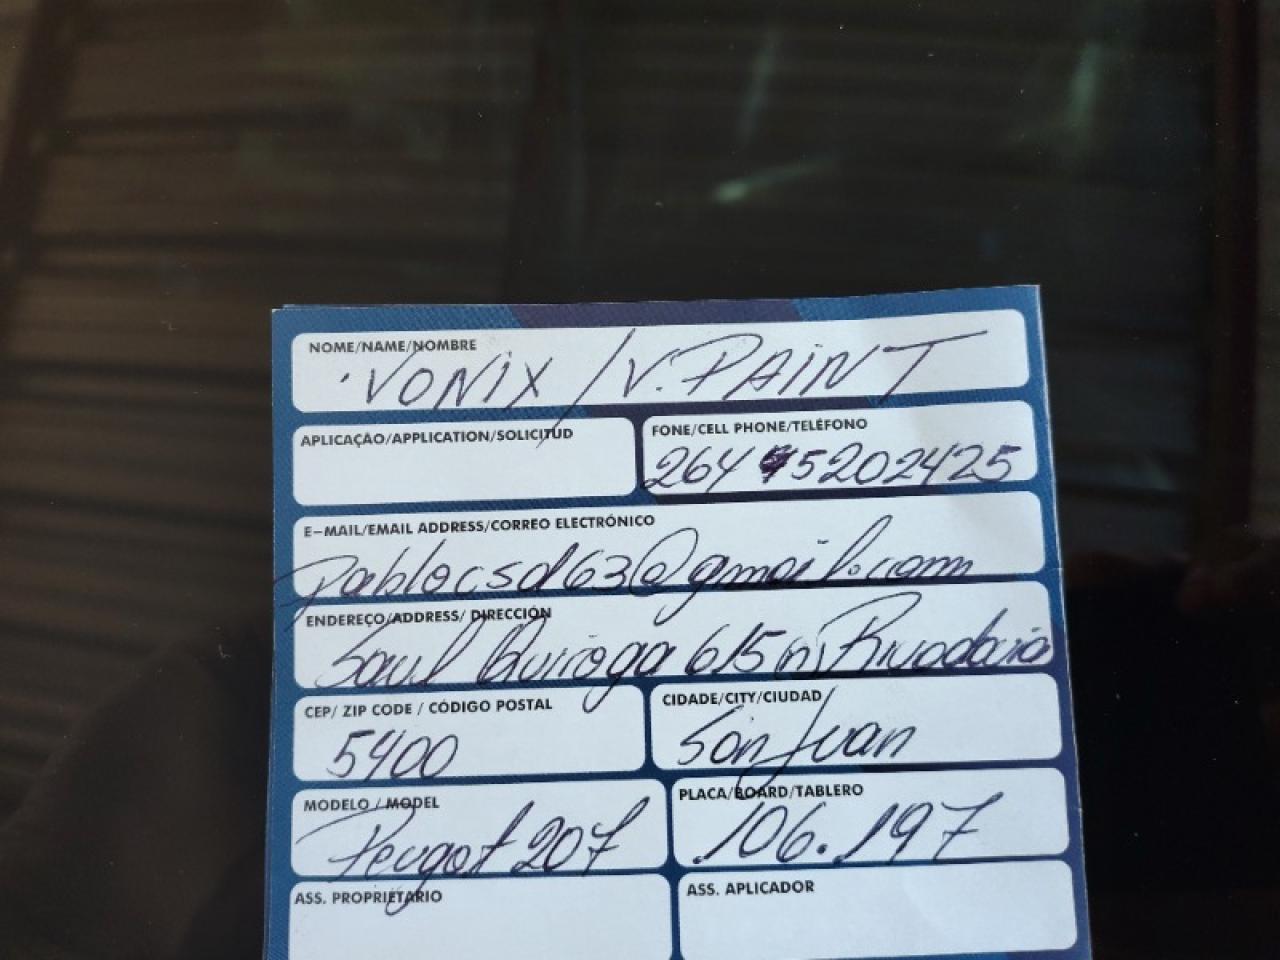 NOME/NAME/NOMBRE
VONIX / V. PAINT
APLICAÇÃO/APPLICATION/SOLICITUD
FONE/CELL PHONE/TELÉFONO
264 5202425
E-MAIL/EMAIL ADDRESS/CORREO ELECTRÓNICO
pablocsd63@gmail.com
ENDEREÇO/ADDRESS/ DIRECCIÓN
Saul Quiroga 615 (n) Rivadavia
CEP/ ZIP CODE / CÓDIGO POSTAL
5400
CIDADE/CITY/CIUDAD
San Juan
MODELO / MODEL
Peugot 207
PLACA/BOARD/TABLERO
106.197
ASS. PROPRIETÁRIO
ASS. APLICADOR